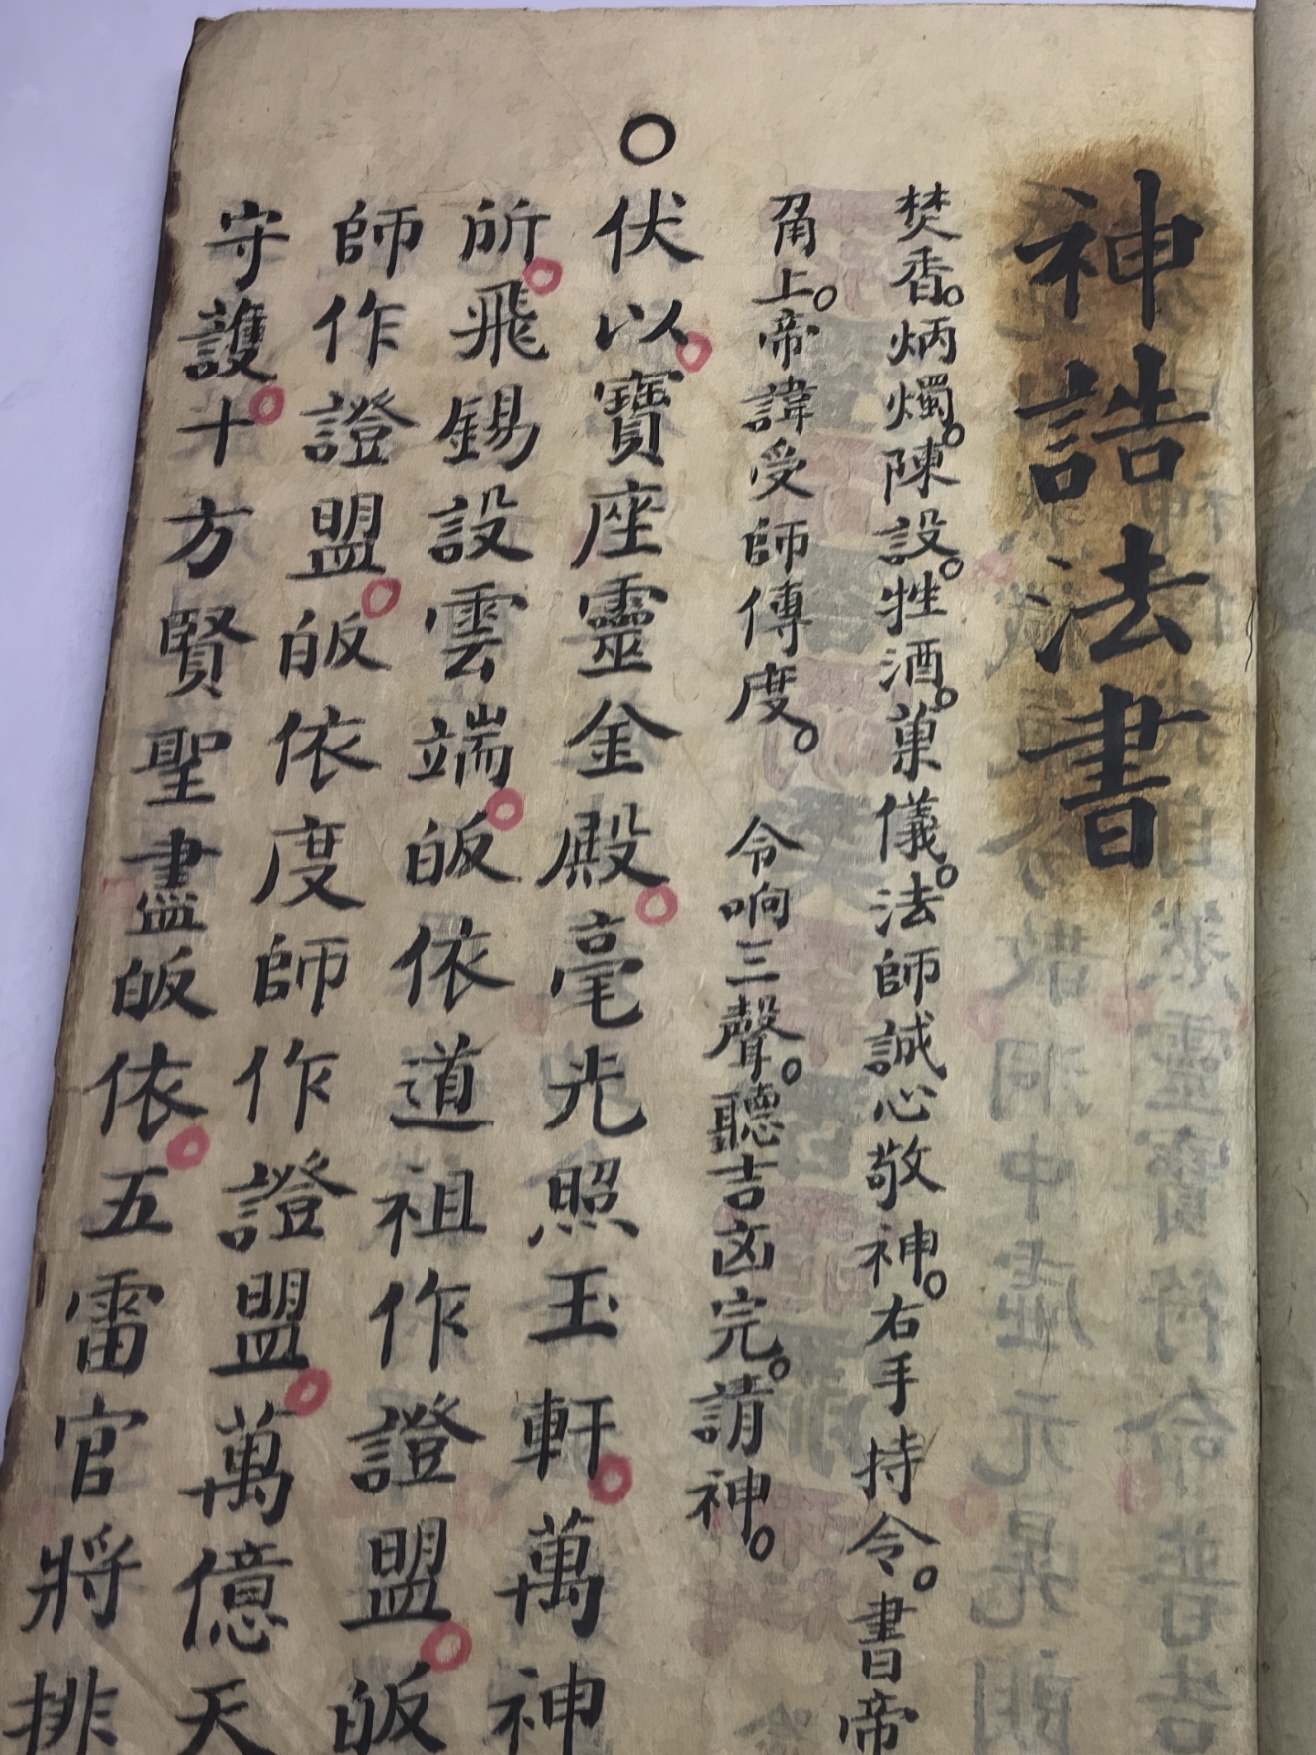 神誥法書
焚香。炳燭。陳設。牲酒。菓儀。法師誠心敬神。右手持令。書帝
上。帝諱受師傅度。 令响三聲。聽吉凶完。請神。
○伏以。寶座靈金殿。毫光照玉軒。萬神
所。飛錫設雲端。皈依道祖作證盟。皈
師作證盟。皈依度師作證盟。萬億天
守護。十方賢聖盡皈依。五雷官將排